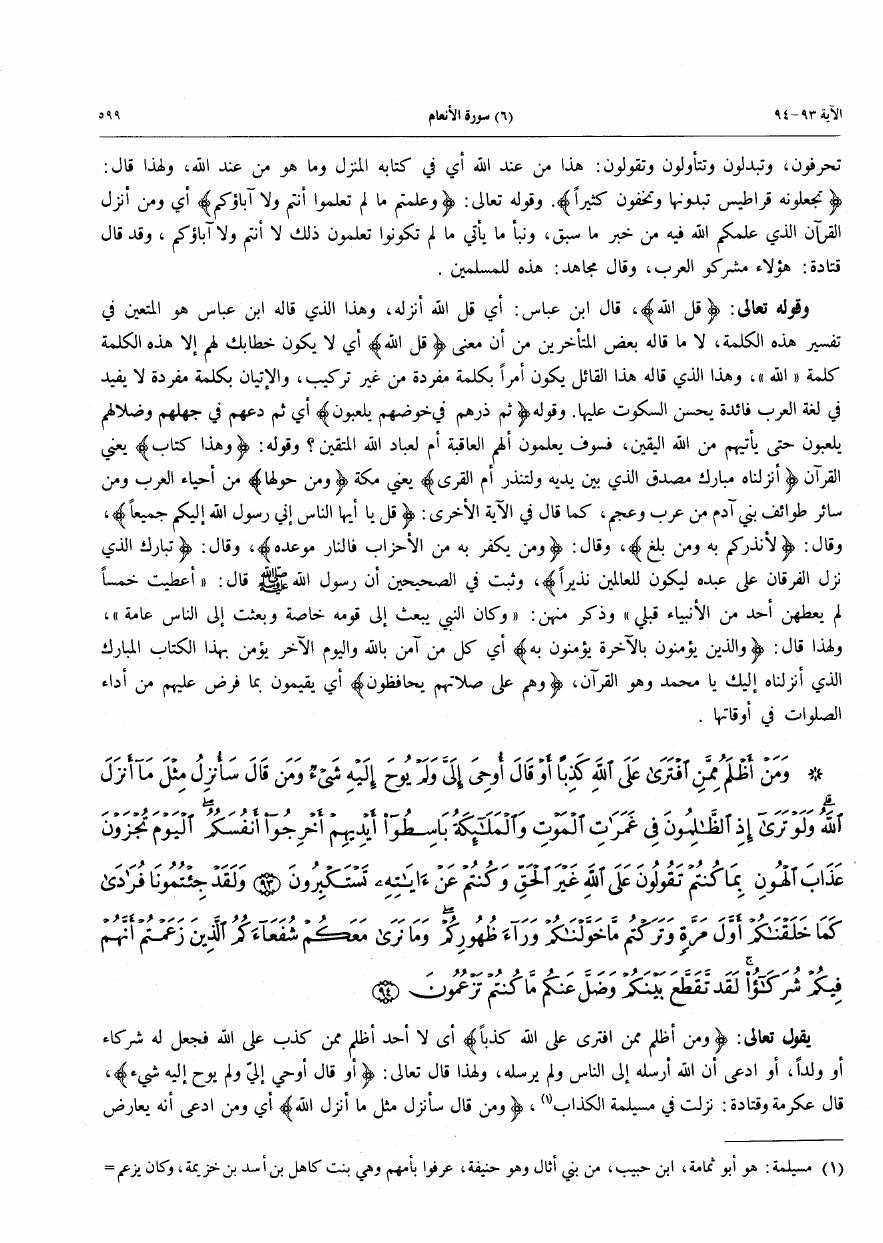 الآية ٩٣-٩٤ (٦) سورة الأنعام ٥٩٩
تحرفون، وتبدلون وتتأولون وتقولون: هذا من عند الله أي في كتابه المنزل وما هو من عند الله، ولهذا قال:
﴿تجعلونه قراطيس تبدونها وتخفون كثيراً﴾. وقوله تعالى: ﴿وعلمتم ما لم تعلموا أنتم ولا آباؤكم﴾ أي ومن أنزل
القرآن الذي علمكم الله فيه من خبر ما سبق، ونبأ ما يأتي ما لم تكونوا تعلمون ذلك لا أنتم ولا آباؤكم ، وقد قال
قتادة: هؤلاء مشركو العرب، وقال مجاهد: هذه للمسلمين .
وقوله تعالى: ﴿قل الله﴾، قال ابن عباس: أي قل الله أنزله، وهذا الذي قاله ابن عباس هو المتعين في
تفسير هذه الكلمة، لا ما قاله بعض المتأخرين من أن معنى ﴿قل الله﴾ أي لا يكون خطابك لهم إلا هذه الكلمة
كلمة « الله »، وهذا الذي قاله هذا القائل يكون أمراً بكلمة مفردة من غير تركيب، والإتيان بكلمة مفردة لا يفيد
في لغة العرب فائدة يحسن السكوت عليها. وقوله﴿ثم ذرهم في خوضهم يلعبون﴾ أي ثم دعهم في جهلهم وضلالهم
يلعبون حتى يأتيهم من الله اليقين، فسوف يعلمون ألهم العاقبة أم لعباد الله المتقين؟ وقوله: ﴿وهذا كتاب﴾ يعني
القرآن ﴿أنزلناه مبارك مصدق الذي بين يديه ولتنذر أم القرى﴾ يعني مكة ﴿ومن حولها﴾ من أحياء العرب ومن
سائر طوائف بني آدم من عرب وعجم، كما قال في الآية الأخرى: ﴿قل يا أيها الناس إني رسول الله إليكم جميعاً﴾،
وقال: ﴿لأنذركم به ومن بلغ﴾، وقال: ﴿ومن يكفر به من الأحزاب فالنار موعده﴾، وقال: ﴿تبارك الذي
نزل الفرقان على عبده ليكون للعالمين نذيراً﴾، وثبت في الصحيحين أن رسول الله ﷺ قال: « أعطيت خمساً
لم يعطهن أحد من الأنبياء قبلي » وذكر منهن: « وكان النبي يبعث إلى قومه خاصة وبعثت إلى الناس عامة »،
ولهذا قال: ﴿والذين يؤمنون بالآخرة يؤمنون به﴾ أي كل من آمن بالله واليوم الآخر يؤمن بهذا الكتاب المبارك
الذي أنزلناه إليك يا محمد وهو القرآن، ﴿وهم على صلاتهم يحافظون﴾ أي يقيمون بما فرض عليهم من أداء
الصلوات في أوقاتها .
* وَمَنْ أَظْلَمُ مِمَّنِ ٱفْتَرَىٰ عَلَى ٱللَّهِ كَذِبًا أَوْ قَالَ أُوحِىَ إِلَىَّ وَلَمْ يُوحَ إِلَيْهِ شَىْءٌ وَمَن قَالَ سَأُنزِلُ مِثْلَ مَآ أَنزَلَ
ٱللَّهُ ۗ وَلَوْ تَرَىٰٓ إِذِ ٱلظَّٰلِمُونَ فِى غَمَرَٰتِ ٱلْمَوْتِ وَٱلْمَلَٰٓئِكَةُ بَاسِطُوٓا۟ أَيْدِيهِمْ أَخْرِجُوٓا۟ أَنفُسَكُمُ ۖ ٱلْيَوْمَ تُجْزَوْنَ
عَذَابَ ٱلْهُونِ بِمَا كُنتُمْ تَقُولُونَ عَلَى ٱللَّهِ غَيْرَ ٱلْحَقِّ وَكُنتُمْ عَنْ ءَايَٰتِهِۦ تَسْتَكْبِرُونَ ﴿٩٣﴾ وَلَقَدْ جِئْتُمُونَا فُرَٰدَىٰ
كَمَا خَلَقْنَٰكُمْ أَوَّلَ مَرَّةٍ وَتَرَكْتُم مَّا خَوَّلْنَٰكُمْ وَرَآءَ ظُهُورِكُمْ ۖ وَمَا نَرَىٰ مَعَكُمْ شُفَعَآءَكُمُ ٱلَّذِينَ زَعَمْتُمْ أَنَّهُمْ
فِيكُمْ شُرَكَٰٓؤُا۟ ۚ لَقَد تَّقَطَّعَ بَيْنَكُمْ وَضَلَّ عَنكُم مَّا كُنتُمْ تَزْعُمُونَ ﴿٩٤﴾
يقول تعالى: ﴿ومن أظلم ممن افترى على الله كذباً﴾ أى لا أحد أظلم ممن كذب على الله فجعل له شركاء
أو ولداً، أو ادعى أن الله أرسله إلى الناس ولم يرسله، ولهذا قال تعالى: ﴿أو قال أوحي إليّ ولم يوح إليه شيء﴾،
قال عكرمة وقتادة: نزلت في مسيلمة الكذاب(١) ، ﴿ومن قال سأنزل مثل ما أنزل الله﴾ أي ومن ادعى أنه يعارض
(١) مسيلمة: هو أبو ثمامة، ابن حبيب، من بني أثال وهو حنيفة، عرفوا بأمهم وهي بنت كاهل بن أسد بن خزيمة، وكان يزعم =